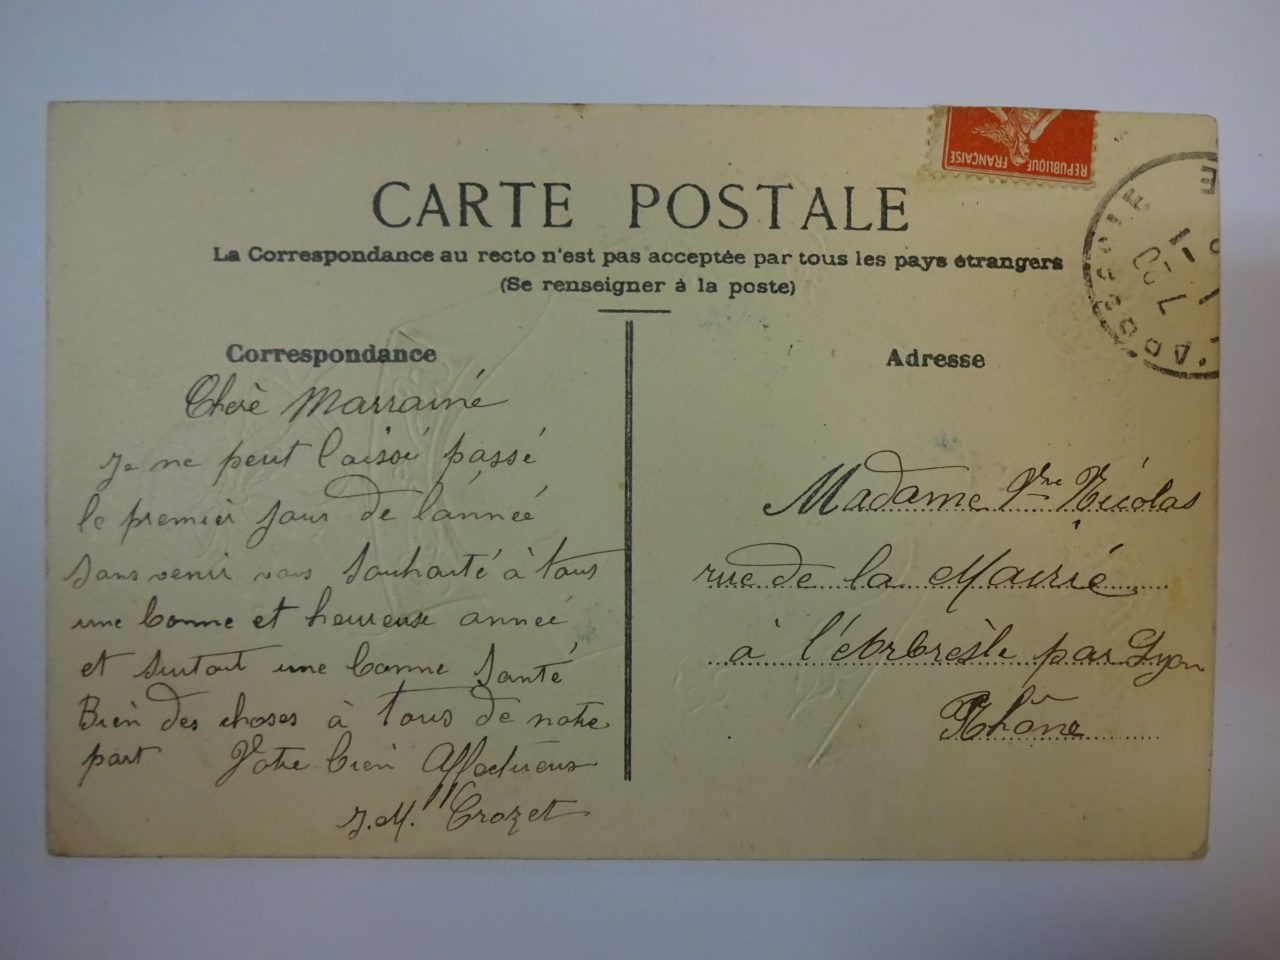 REPUBLIQUE FRANÇAISE
CARTE POSTALE
La Correspondance au recto n'est pas acceptée par tous les pays étrangers
(Se renseigner à la poste)
Correspondance
Cherè Marrainé
Je ne peut laissé passé
le premier jour de l'année
sans venir vous souhaité à tous
une bonne et heureuse année
et surtout une bonne santé
Bien des choses à tous de notre
part Votre bien Affectueux
J.M. Crozet
Adresse
Madame Vve Nicolas
rue de la Mairié
à l'Arbresle par Lyon
Rhône